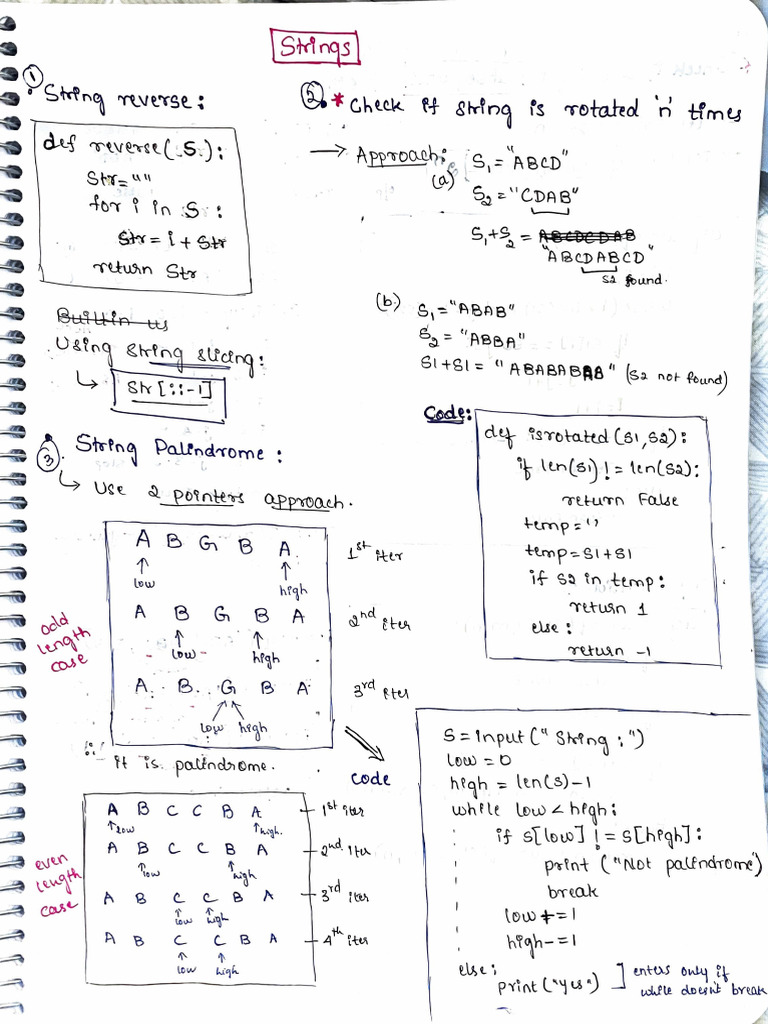 Strings
① String reverse:
def reverse(S):
Str=""
for i in S:
Str=i+Str
return Str
Builtin us
Using string slicing:
↳ Str[::-1]
③. String Palindrome:
↳ Use 2 pointers approach.
A B G B A 1st iter
↑ ↑
low high
A B G B A 2nd iter
↑ ↑
low high
A B G B A 3rd iter
low high
odd
length
case
∴ it is palindrome.
code
A B C C B A - 1st iter
↑low ↑high.
A B C C B A - 2nd iter
↑low ↑high
A B C C B A - 3rd iter
↑ ↑
low high
A B C C B A - 4th iter
↑ ↑
low high
even
length
case
②. * Check if string is rotated 'n' times
→ Approach:
(a) S1="ABCD"
S2="CDAB"
S1+S2 = ABCDCDAB
"ABCDABCD"
S2 found.
(b.) S1="ABAB"
S2="ABBA"
S1+S1= "ABABABAB" (S2 not found)
Code:
def isrotated(S1,S2):
if len(S1)!=len(S2):
return False
temp=''
temp=S1+S1
if S2 in temp:
return 1
else:
return -1
S=input("String:")
low=0
high=len(s)-1
while low<high:
if s[low]!=s[high]:
print("Not palindrome")
break
low+=1
high-=1
else:
print("yes") ] enters only if
while doesn't break